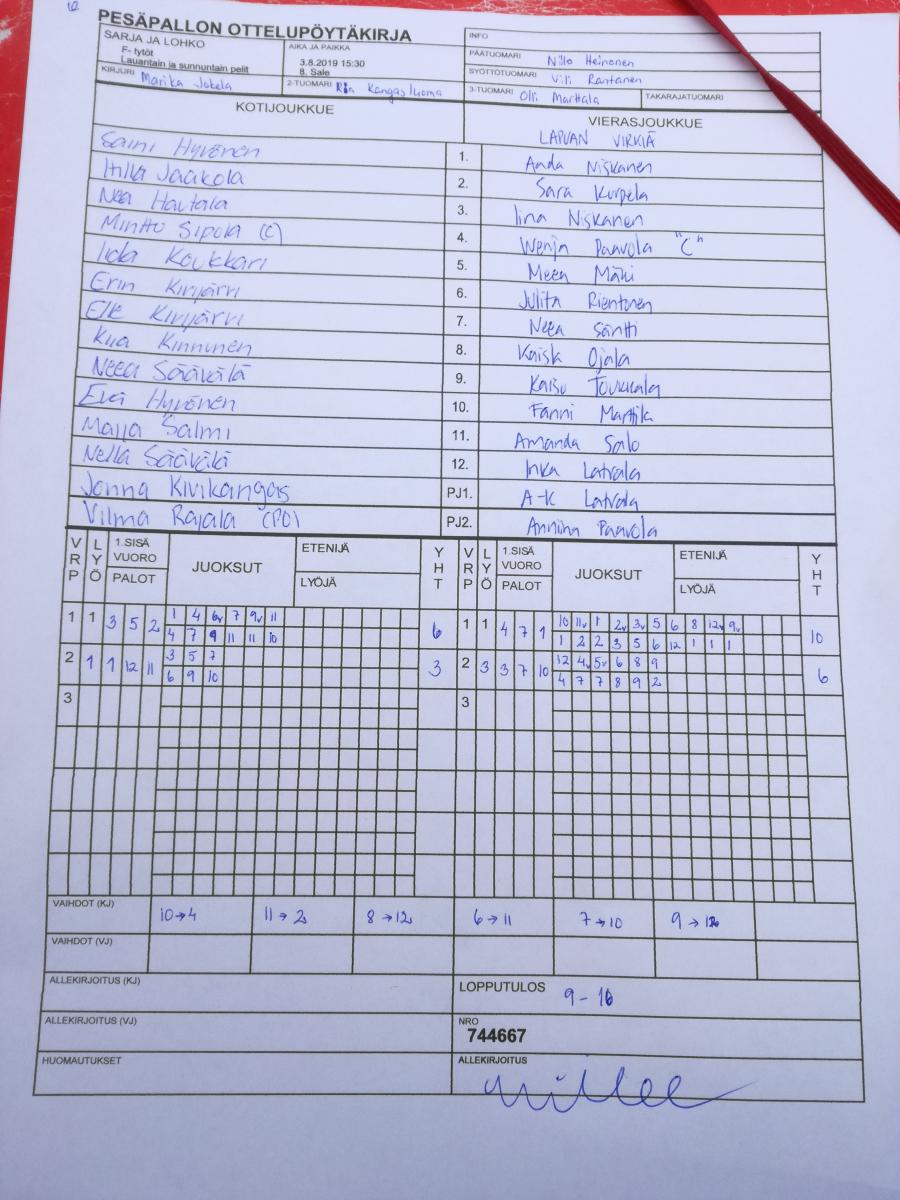 12
PESÄPALLON OTTELUPÖYTÄKIRJA
SARJA JA LOHKO
F- tytöt
Lauantain ja sunnuntain pelit
AIKA JA PAIKKA
3.8.2019 15:30
8. Sale
INFO
PÄÄTUOMARI Niilo Heinonen
SYÖTTÖTUOMARI Vili Rantanen
KIRJURI Marika Jokela
2-TUOMARI Ria Kangasluoma
3-TUOMARI Olli Marttala
TAKARAJATUOMARI
KOTIJOUKKUE
VIERASJOUKKUE
LAPUAN VIRKIÄ
Saini Hyvönen 1. Anda Niskanen
Hilla Jaakola 2. Sara Kurpela
Nea Hautala 3. Iina Niskanen
Minttu Sipola (C) 4. Wenja Paavola "C"
Iida Koukkari 5. Meea Mäki
Erin Kirjärvi 6. Julita Rientonen
Elle Kirjärvi 7. Neea Säntti
Kiia Kinnunen 8. Kaisk Ojala
Neea Säävälä 9. Kaisu Toukkala
Eva Hyvönen 10. Fanni Marttila
Maija Salmi 11. Amanda Salo
Nella Säävälä 12. Inka Latvala
Jonna Kivikangas PJ1. A-K Latvala
Vilma Rajala (PO) PJ2. Anniina Paavola
VRP LYÖ 1.SISÄ VUORO PALOT JUOKSUT ETENIJÄ LYÖJÄ YHT VRP LYÖ 1.SISÄ VUORO PALOT JUOKSUT ETENIJÄ LYÖJÄ YHT
1 1 3 5 2 1 4 6v 7 9v 11 6 1 1 4 7 1 10 11v 1 2v 3v 5 6 8 12v 9v 10
4 7 9 11 11 10 1 2 2 3 5 6 12 1 1 1
2 1 1 12 11 3 5 7 3 2 3 3 7 10 12 4v 5v 6 8 9 6
6 9 10 4 7 7 8 9 2
3 3
VAIHDOT (KJ) 10→4 11→2 8→12 6→11 7→10 9→12
VAIHDOT (VJ)
ALLEKIRJOITUS (KJ)
LOPPUTULOS 9-16
ALLEKIRJOITUS (VJ)
NRO
744667
HUOMAUTUKSET
ALLEKIRJOITUS